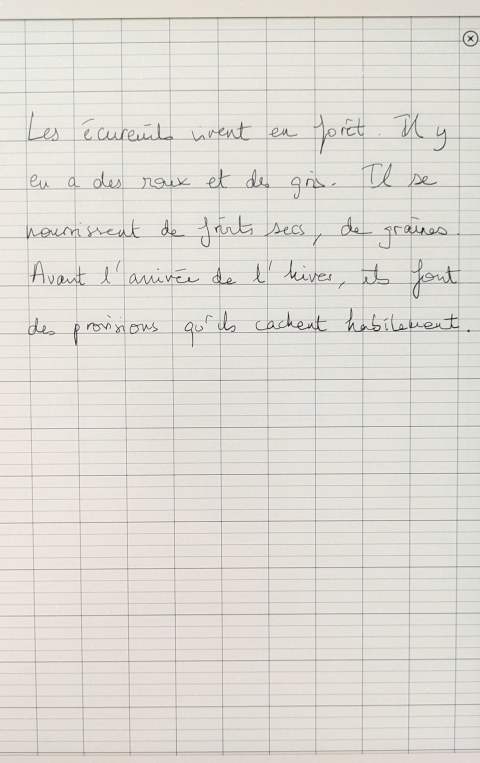 Les écureuils vivent en forêt. Il y
en a des roux et des gris. Il se
nourrissent de fruits secs, de graines.
Avant l'arrivée de l'hiver, ils font
des provisions qu'ils cachent habilement.